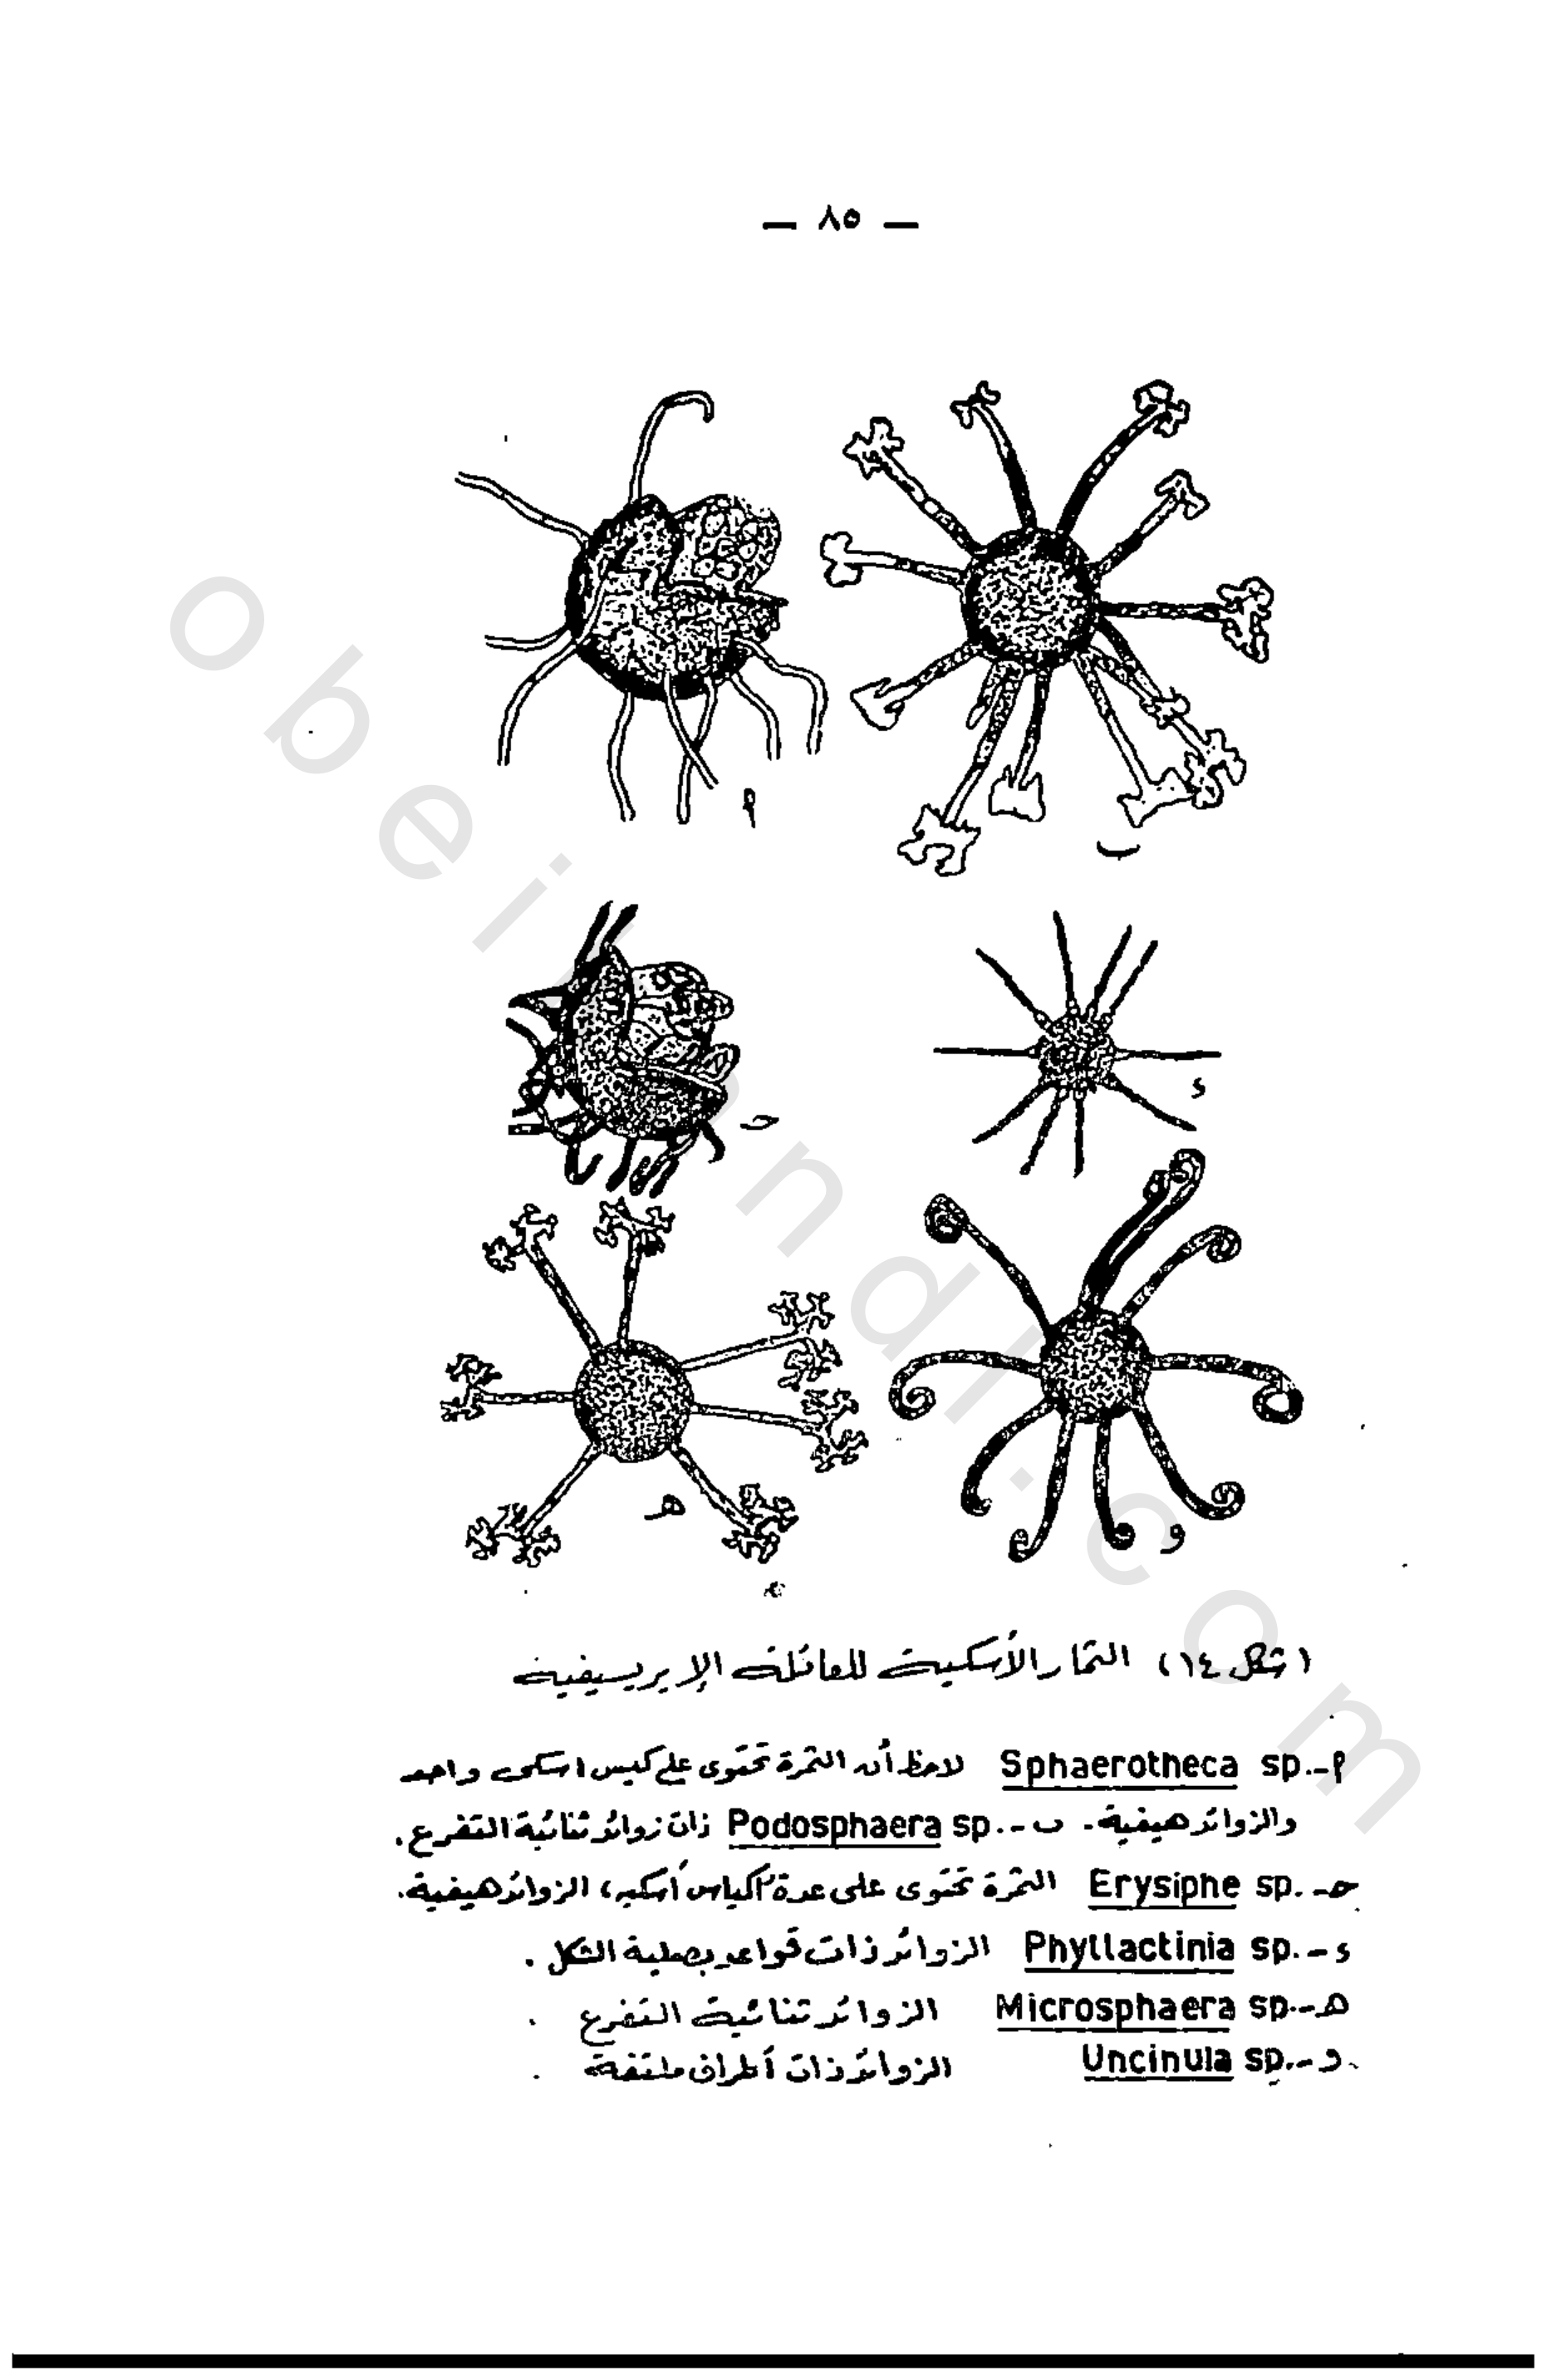 — ٨٥ —
أ
ب
ج
د
هـ
و
(شكل ١٤) الثمار الأسكية للعائلة الإيريسيفية
أ- Sphaerotheca sp. لاحظ أن الثمرة تحتوى على كيس اسكى واحد
والزوائد هيفية. ب- Podosphaera sp. ذات زوائد ثنائية التفرع.
ج- Erysiphe sp. الثمرة تحتوى على عدة أكياس أسكية، الزوائد هيفية.
د- Phyllactinia sp. الزوائد ذات قواعد بصلية الشكل.
هـ- Microsphaera sp. الزوائد ثنائية التفرع.
و- Uncinula sp. الزوائد ذات أطراف ملتفة.
obeikandl.com